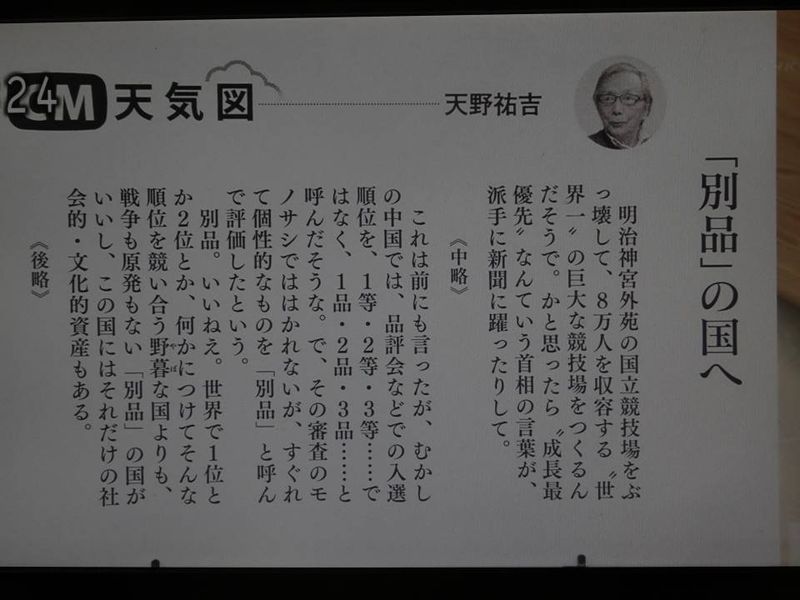 24
CM天気図
天野祐吉
「別品」の国へ
明治神宮外苑の国立競技場をぶ
っ壊して、8万人を収容する〝世
界一〟の巨大な競技場をつくるん
だそうで。かと思ったら〝成長最
優先〟なんていう首相の言葉が、
派手に新聞に躍ったりして。
《中略》
これは前にも言ったが、むかし
の中国では、品評会などでの入選
順位を、1等・2等・3等……で
はなく、1品・2品・3品……と
呼んだそうな。で、その審査のモ
ノサシでははかれないが、すぐれ
て個性的なものを「別品」と呼ん
で評価したという。
別品。いいねえ。世界で1位と
か2位とか、何かにつけてそんな
順位を競い合う野暮やぼな国よりも、
戦争も原発もない「別品」の国が
いいし、この国にはそれだけの社
会的・文化的資産もある。
《後略》